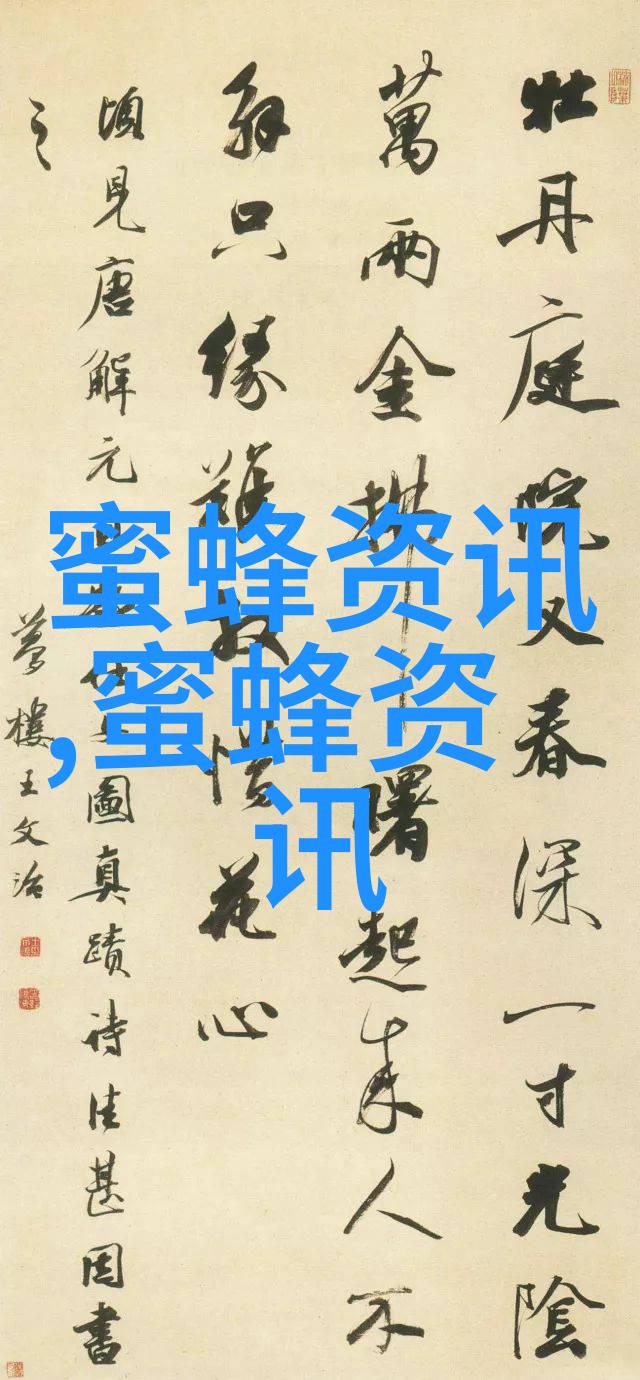 牡丹庭院又春深一寸光陰
萬兩金拂曙起來人不
解只緣難放惜花心
頃見唐解元仕女圖真蹟詩佳甚因書
之
夢樓王文治
蜜蜂资讯
,蜜蜂资
讯